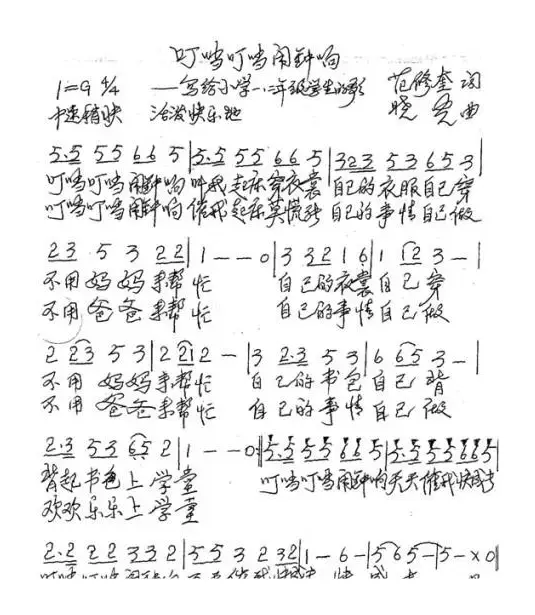 叮当叮当闹钟响
1=G 4/4 ——写给小学一、二年级学生的歌 范修奎 词
中速稍快 活泼快乐地 晓 曲
5.5 55 66 5|5.5 55 66 5|323 53 65 3|
叮当叮当闹钟响 叫我起床穿衣裳 自己的衣服自己穿
叮当叮当闹钟响 催我起床莫慌张 自己的事情自己做
23 5 3 22|1 - - 0|3 32 1 6|1 12 3 -|
不用妈妈来帮忙 自己的衣裳自己穿
不用爸爸来帮忙 自己的事情自己做
2 23 5 3|2 21 2 -|3 2.3 5 3|6 65 3 -|
不用妈妈来帮忙 自己的书包自己背
不用爸爸来帮忙 自己的事情自己做
2.3 53 65 2|1 - - 0:‖5.5 55 66 5|5.5 55 66 5|
背起书包上学堂 叮当叮当闹钟响天天催我快成长
欢欢乐乐上学堂
2.2 22 33 2|5.5 3 2 32|1 - 6 -|5 6 5 -|5 - x 0|